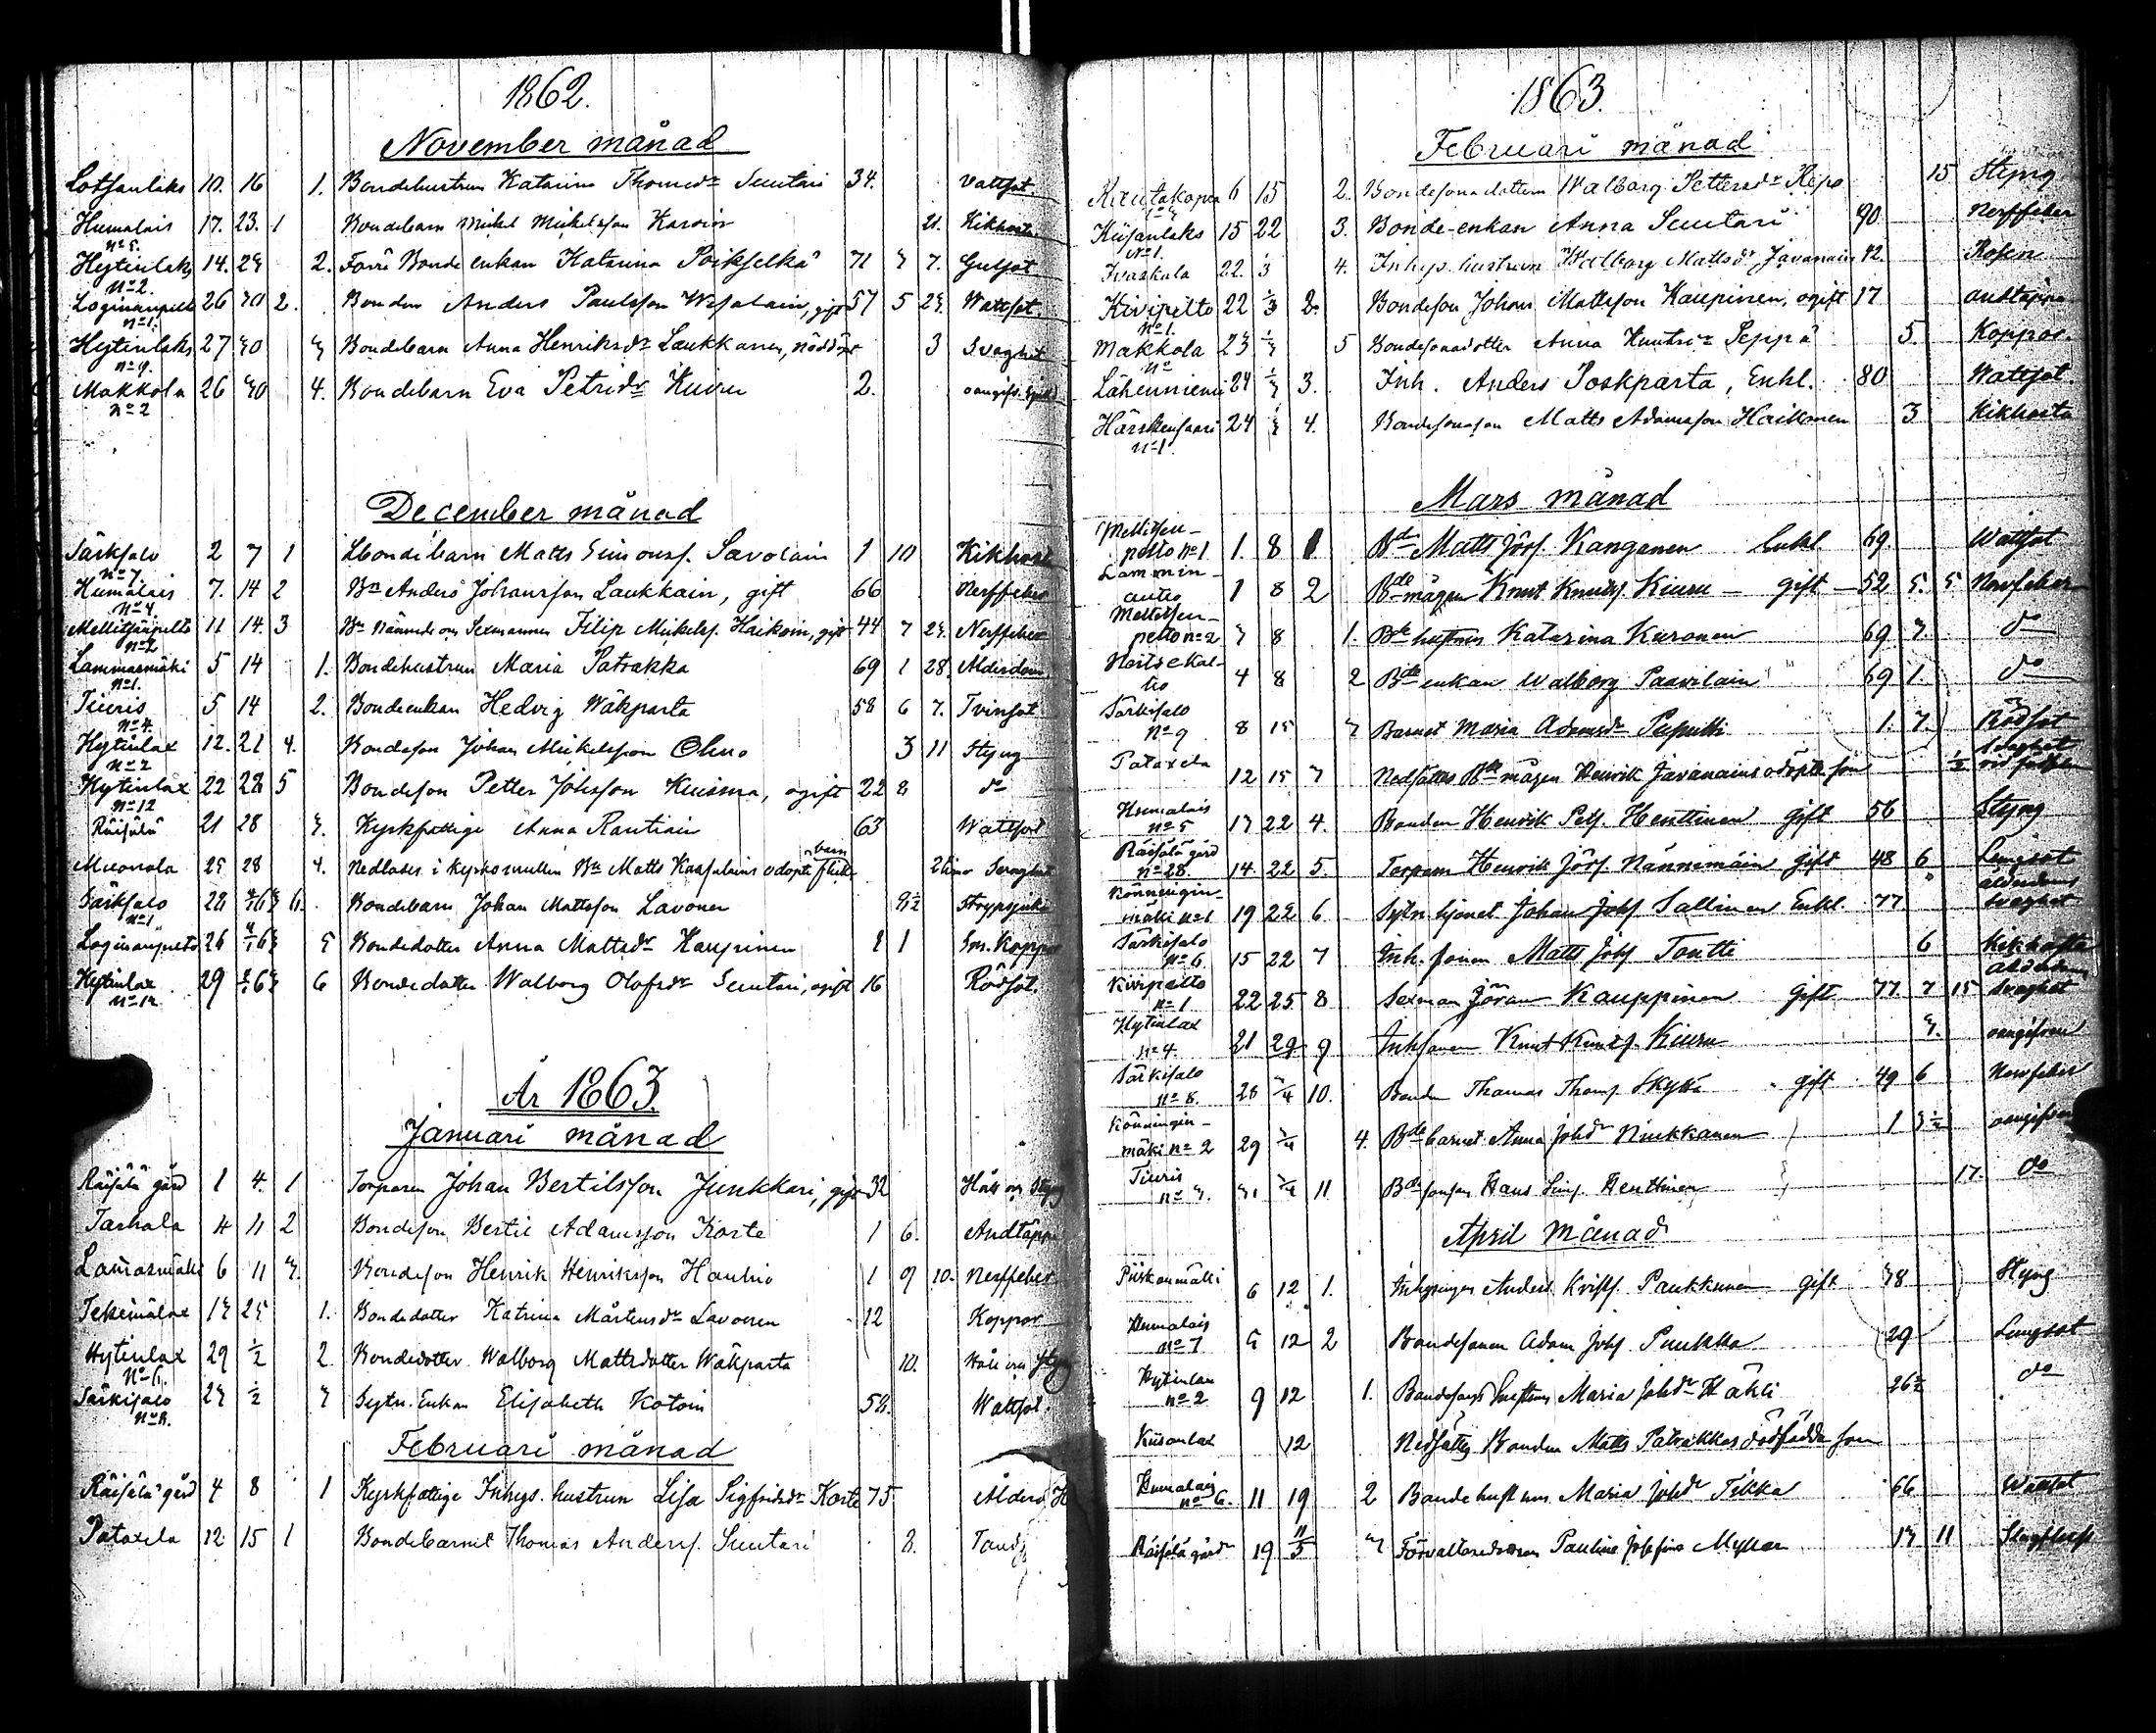 1862.
November månad
Lotsanlaks 10. 16 1. Bondehustrun Katarina Thomasdr Suutari 34. Vattsot.
Humalais 17. 23. 1 Bondebarn Mickel Mickelsson Karoin 21. Kikhosta
No 5.
Hytinlaks 14. 23 2. Förre Bonde enkan Katarina Poikselkä 71 3 7. Gulsot
No 2.
Loginanpelto 26 30 2. Bonden Anders Paulsson Wesalain, gift 57 5 23. Wattsot.
No 1.
Hytinlaks 27 30 3 Bondebarn Anna Henriksdr Laukkanen, nöddöpt 3 Svaghet
No 9.
Makkola 26 30 4. Bondebarn Eva Petridr Kiuru 2. oangifv.
No 2
December månad
Särkisalo 2 7 1 Bondebarn Matts Simonss. Savolain 1 10 Kikhosta
No 7.
Humalais 7. 14 2 Bn Anders Johansson Laukkain, gift 66 Nerffeber
No 4.
Mellitsänpelto 11 14. 3 Bn Nämnde om Sexmannen Filip Mickelss. Haikoin, gift 44 7 23. Nerffeber
No 2
Lammasmäki 5 14 1. Bondehustrun Maria Patrakka 69 1 28. Ålderdom
No 1.
Tiuris 5 14 2. Bondeenkan Hedvig Wäkparta 58 6 7. Tvinsot
No 4.
Hytinlax 12. 21 4. Bondeson Johan Mickelsson Ohvo 3 11 Styng
No 2
Hytinlax 22 28 5 Bondeson Petter Johsson Kuisma, ogift 22 8 do
No 12
Räisälä 21 28 3. Kyrkfattige Anna Rautiain 63 Wattsot
Muonala 25 28 4. Nedlades i kyrkomullen Bn Matts Kaasalains odöpte flicke barn 2 tim. Svaghet
Särkisalo 28 4/1 63 6. Bondebarn Johan Mattsson Lavonen 8½ Strypsjuka
No 1
Loginanpelto 26 4/1 63 5 Bondedotter Anna Mattsdr Kaupinen 2 1 Sm. Koppor
Hytinlax 29 63 6 Bondedotter Walborg Olofsdr Suutari, ogift 16 Rödsot.
No 12.
År 1863.
Januari månad
Räisälä gård 1 4. 1 Torparen Johan Bertilsson Junkkari, gift 32 Håll og Styng
Tarhala 4 11 2 Bondeson Bertil Adamsson Korte 1 6. Andtäppa
Lamasmäki 6 11 3. Bondeson Henrik Henriksson Hauhio 1 9 10. Nerffeber
13 25 1. Bondedotter Katrina Mårtensdr Lavonen 12 Koppor
Hytinlax 29 ½ 2. Bondedotter Walborg Mattsdotter Wäkparta 10. Håll och Styng
No 6.
Särkisalo 23 ½ 3 Sytn. Enkan Elisabeth Kotoin 58. Wattsot
No 8.
Februari månad
Räisälä gård 4 8 1 Kyrkfattige Inhys. hustrun Lisa Sigfridsdr Korte 75 Ålders
Pataxela 12. 15 1 Bondebarnet Thomas Anderss. Suutari 8. Tands
1863.
Februari månad
Rautakopra 6 15 2. Bondesonadottern Walborg Pettersdr Repo 15 Styng
Kiisanlaks 15 22 3. Bonde-enkan Anna Suutari 90. Nerffeber
No 1.
Ivaskala 22. 1/3 4. Inhys. hustrun Walborg Mattsdr Javanain 42. Rosen
Kivipelto 22 1/3 2. Bondeson Johan Mattsson Kaupinen, ogift 17 andtäppa
No 1.
Makkola 23 1/3 5 Bondesonadotter Anna Knutsdr Seppä 5. Koppor.
No
Lähenniemi 24 1/3 3. Inh. Anders Poskparta, Enkl. 80 Wattsot.
Härskensaari 24 1/3 4. Bondesonason Matts Adamsson Haikonen 3 Kikhosta
No 1
Mars månad
Mellitsen-
pelto No 1 1. 8 1. Bd Matts Jörs. Kanganen Enkl. 69. Wattsot
Lammin-
autio 1 8 2 Bde mågen Knut Knuts. Kiuru gift 52 5. 5 Nervfeber
Mellitsen-
pelto no 2 3 8 1. Bde hustrun Katarina Kuronen 69 3. do
Neitsekal-
lio 4 8 2 Bde enkan Walborg Paavilain 69 1. do
Särkisalo
No 9 8 15 3 Barnet Maria Adamsdr Puputti 1. 7. Rödsot
Pataxela 12 15 3 Nedsattes Bde mågen Henrik Javanains odöpte son ½ Svaghet vid födseln
Humalais
No 5 13 22 4. Bonden Henrik Pets. Henttinen Gift 56 Styng
Räisälä gård
No 28. 14. 22 5. Torparn Henrik Jörs. Nännimäin Gift 48 6 Lungsot
Könnengin-
mäki No 1 19 22 6. Sytn. hjonet Johan Johs. Sallinen Enkl. 77 ålderdoms svaghet
Särkisalo
No 6. 15 22 7 Inh. sonen Matts Johs. Tontti 6 Kikhosta
Kivipelto
No 1 22 25 8 Sexman Jöran Kauppinen Gift 77. 7 15 Ålderdoms svaghet
Hytinlax
No 4. 21 29 9 Inh sonen Knut Knuts. Kiuru 3. oangifven
Särkisalo
No 8. 28 /4 10. Bonden Thomas Thoms. Skyttä gift 49 6 Nervfeber
Könningin-
mäki No 2 29 /4 4. Bde barnet Anna Johsdr Niukkanen 1 3½ oangifven
Tiuris
No 3. 31 /4 11. Bde sonson Hans Sims. Henttinen 17. do
April månad
Piiskonmäki 6 12 1. Inhysingen Anders Krists. Paukkunen Gift 38 Styng
Humalais
No 7 5 12 2 Bondesonen Adam Johs. Puukka 29 Lungsot
Hytinlax
No 2 9 12 1. Bondesons hustrun Maria Johsdr Häkli 26½ do
Kiisanlax 12 Nedsattes Bonden Matts Patrakkas dödfödda son
Humalais
No 6. 11 19 2 Bondehustrun Maria Johsdr Tikka 66 Wattsot
Räisälä gård 19 11/5 3 Förvaltaredottren Paulina Josefina 13 11